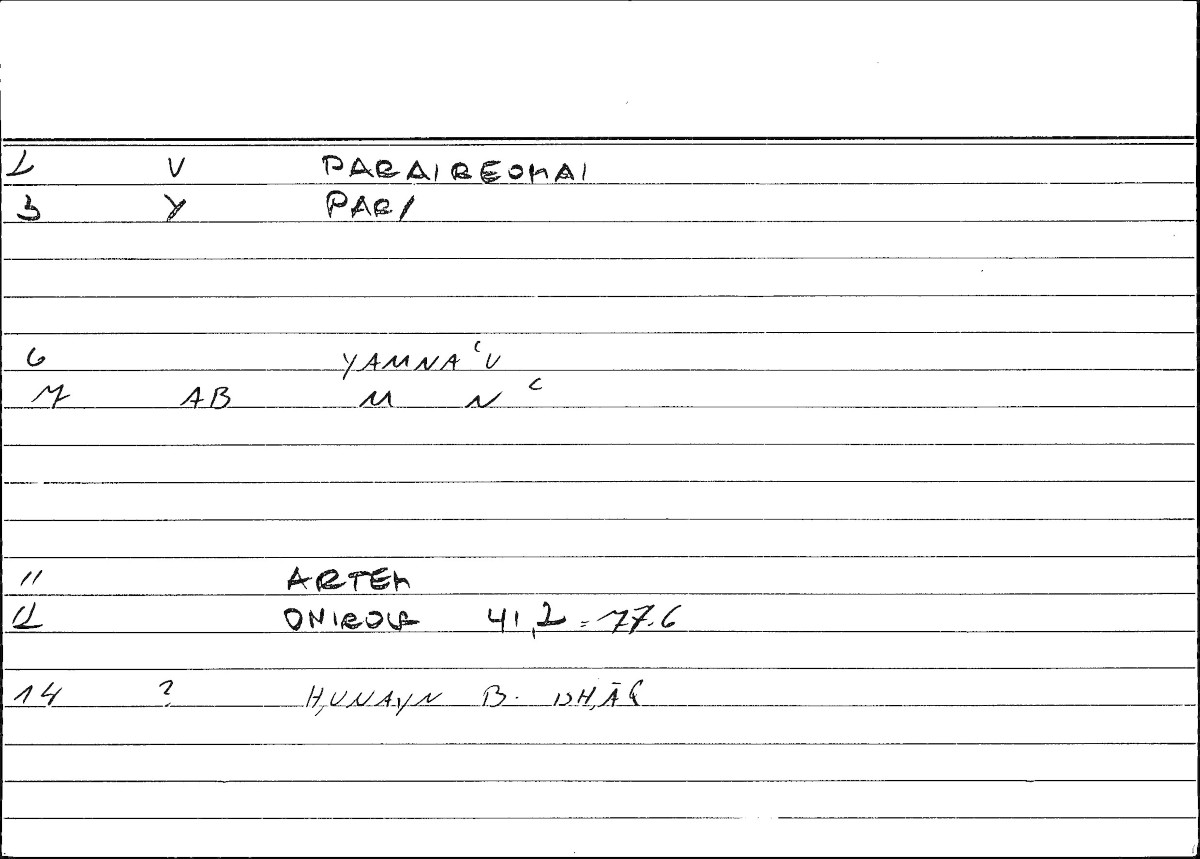 2 V PARAIREOMAI
3 Y PAR/
6 YAMNAʿU
7 AB M N ʿ
11 ARTEM
12 ONIROCR 41,2 = 77.6
14 ? H,UNAYN B. ISH,ĀQ